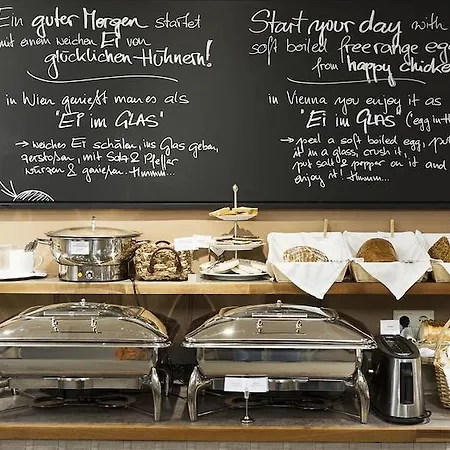 Ein guter Morgen startet
mit einem weichen Ei von
glücklichen Hühnern!
in Wien genießt man es als
"Ei im GLAS"
→ weiches Ei schälen, ins Glas geben,
zerstoßen, mit Salz & Pfeffer
würzen & genießen. Hmmm...
Start your day with
soft boiled freerange egg
from happy chicke
in Vienna you enjoy it as
"Ei im GLAS" (egg in th
→ peel a soft boiled egg, put
it in a glass, crush it,
put salt & pepper on it and
enjoy it! Hmmm...